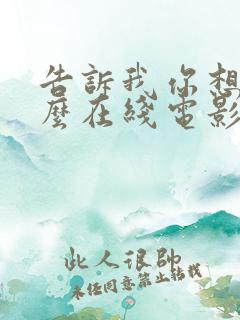 告訴我你想
麼在綫電影
此人很帥
未经同意禁止转载